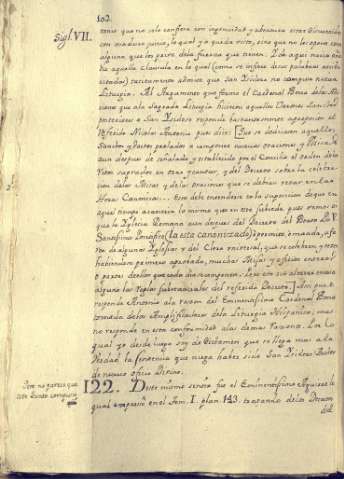 102.
Sigl. VII.
tores que no solo confiesa con ingenuidad y abraza esta
con maduro juicio, lo qual ya queda visto, sino que no les opone cosa
alguna que les pueda dela fuerza que tienen. Y de aqui nace
de aquella clausula en la qual (como se infiere desus palabras
tacitamente admite que San Ysidoro no compuso nueva
Liturgia. Al Argumento que forma el Cardenal Bona dela
que ala Sagrada Liturgia hicieron aquellos Varones Santos
posteriores a San Ysidoro responde
referido Nicolas Antonio pues dice: [Que se dedicaron aquellos
Santos y doctos prelados a componer nuevas oraciones y Missas,
aun despues de señalado y establecido por el Concilio el orden delos
Votos sagrados en esta y del Decreto sobre la celebra-
cion delas Missas y delas oraciones que se debian rezar enlas
Horas Canonicas... Esto debe entenderse en la suposicion de que en
aquel tiempo acaeciese lo mismo que en este sucede, pues vemos
que la Yglesia Romana aun despues del Decreto del Beato Pio V.
Santissimo Pontifice (la esta canonizado) permite, o manda, a fa-
vor de alguna Yglesias y del Clero universal, que se celebren, y rezen
habiendum primero aprobado, muchas Missas y oficios enteros,
o partes dellos que cada dia se componen. Pero esto sin alterar en cosa
alguna las reglas substanciales del referido Decreto.] Assi pues
responde Antonio ala razon del Eminentissimo Cardenal Bona
tomada delos Amplificadores dela Liturgia Hispana; mas
no responde en esta conformidad alas demas razones. Con lo
qual yo desde luego soy de dictamen que se llega mas ala
verdad la sentencia que niega haber sido San Ysidoro Author
de nuevo oficio Divino.
Pero no parece que
este Santo compuso
122. Deste mismo sentir fue el Eminentissimo Aguirre lo
qual expuso en el Tom. I. plan. 143. tratando delos Decretos
del